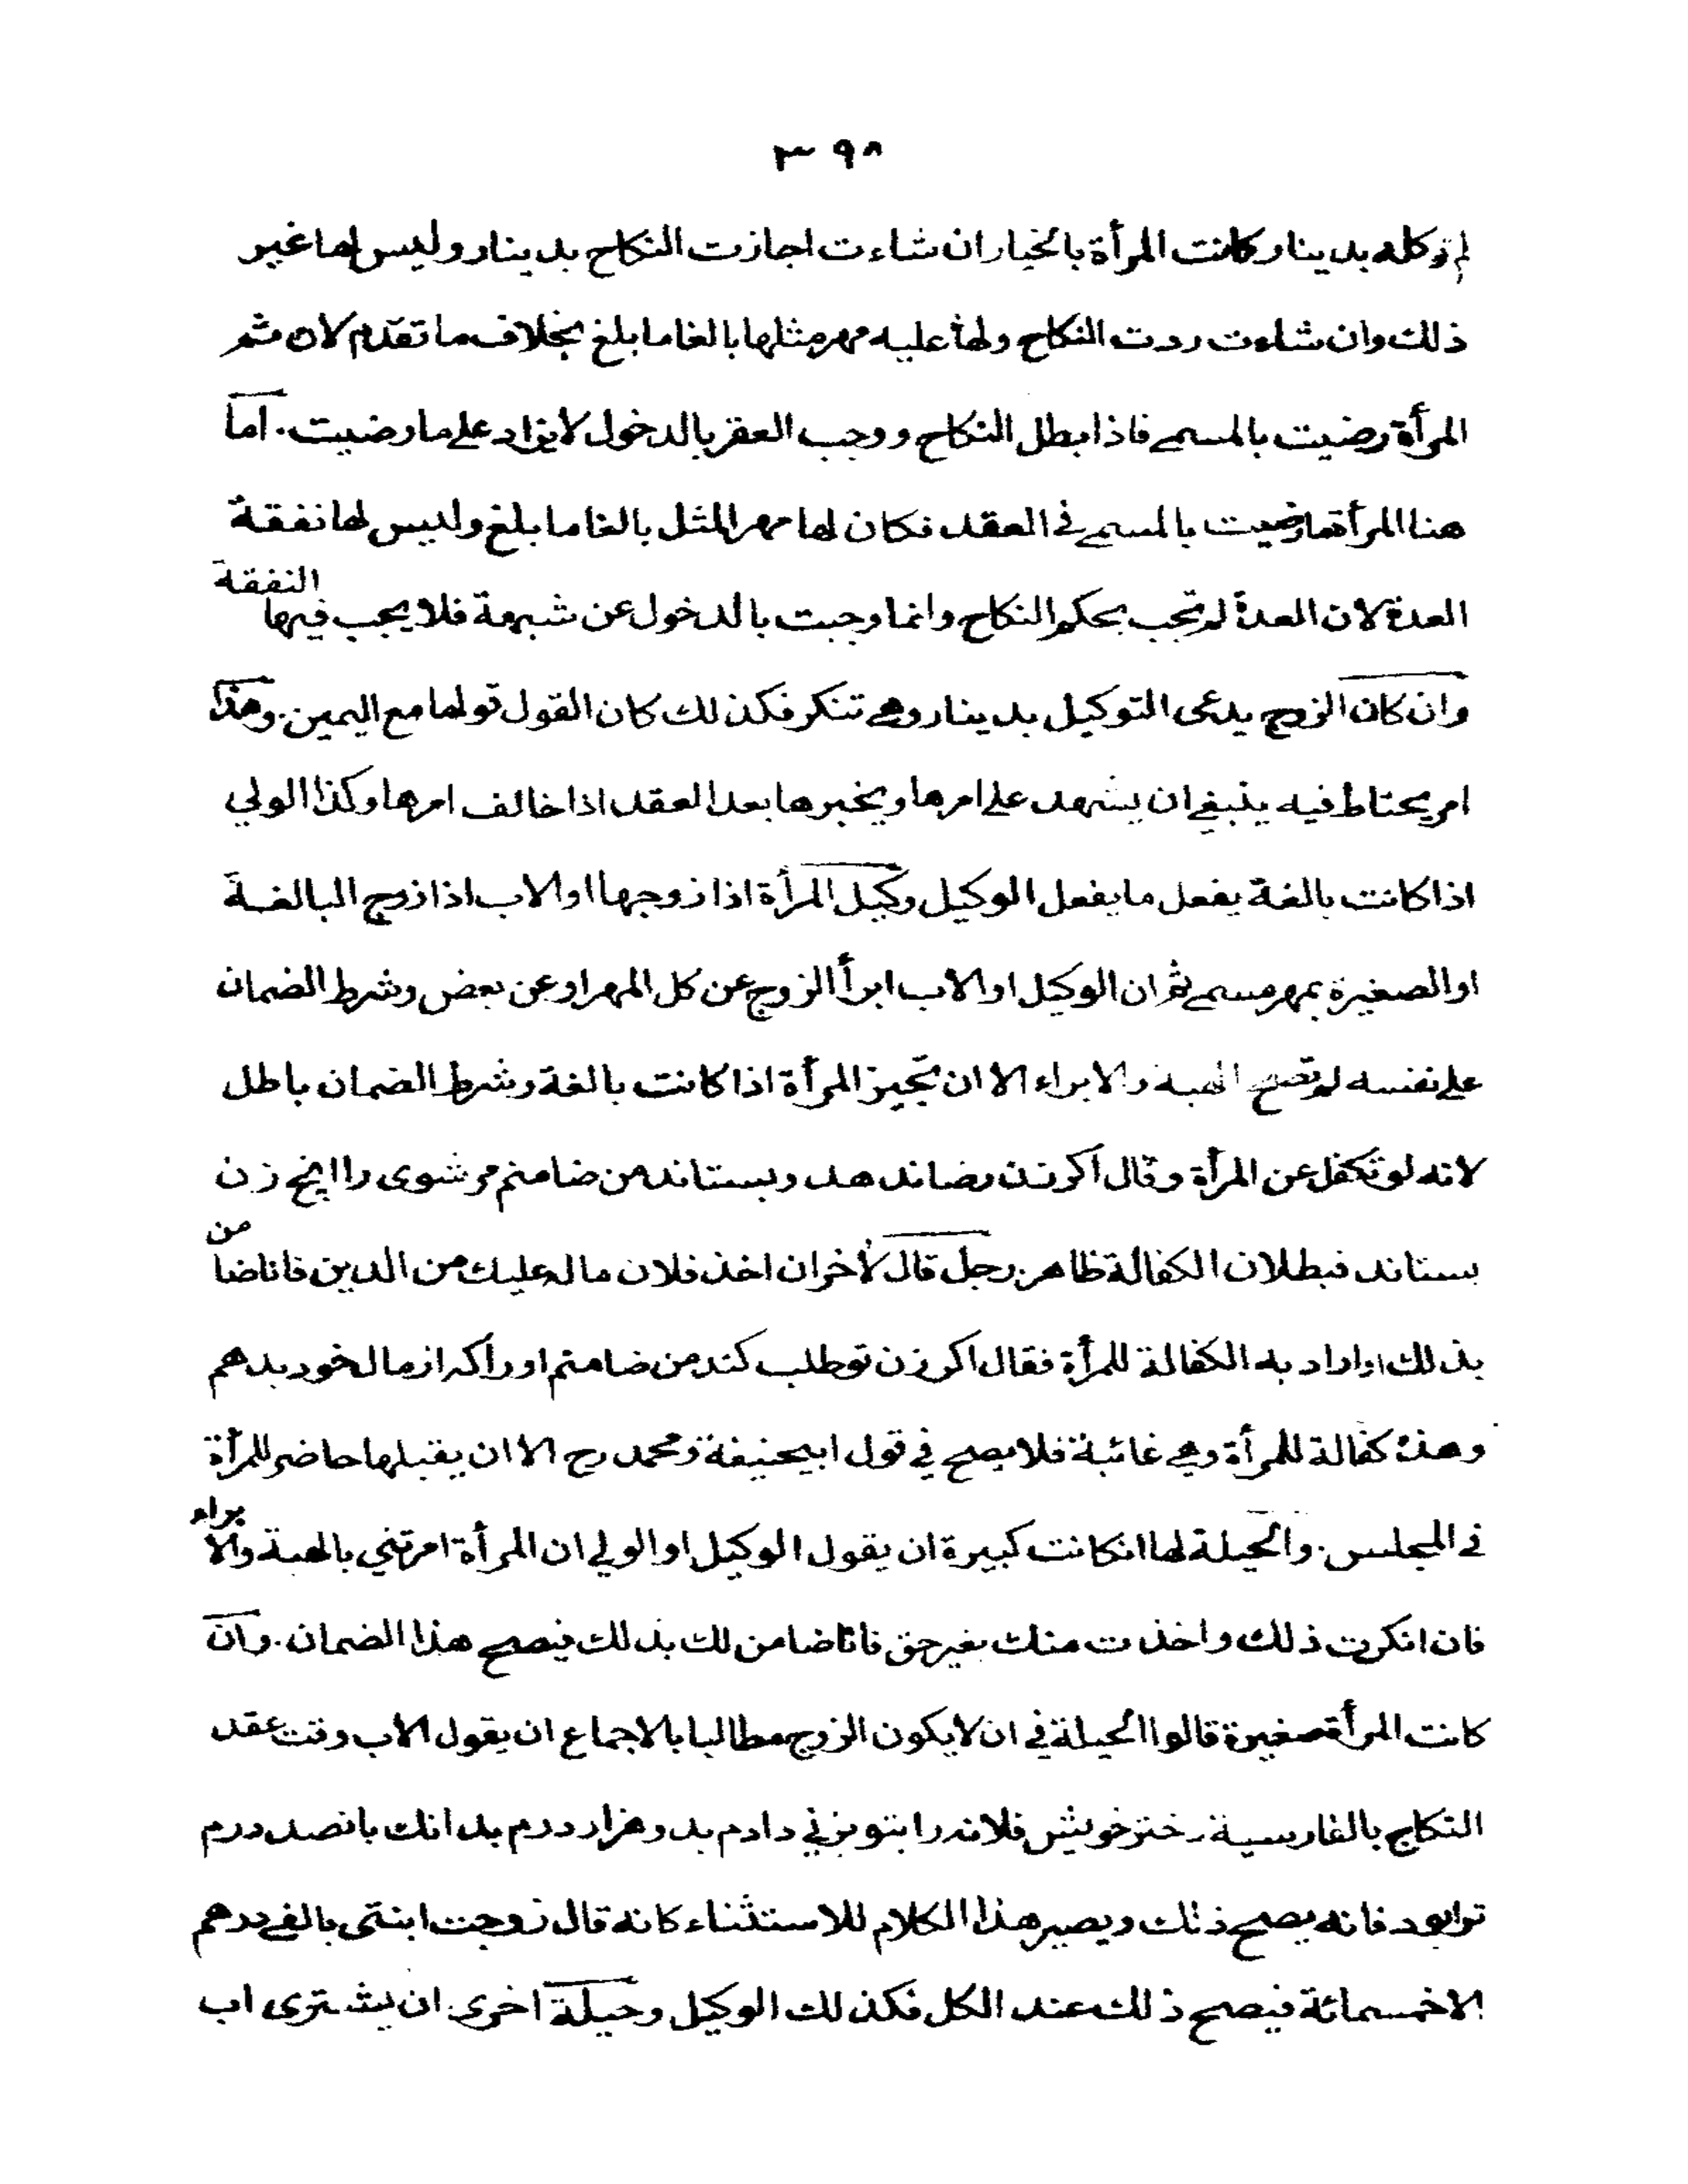 ٣٩٨
لم توكله بدينار كانت المرأة بالخيار ان شاءت اجازت النكاح بدينار وليس لها غير
ذلك وان شاءت ردت النكاح ولها عليه مهر مثلها بالغا ما بلغ بخلاف ما تقدم لان ثم
المرأة رضيت بالمسمى فاذا بطل النكاح ووجب العقر بالدخول لا يزاد على ما رضيت. اما
هنا المرأة ما رضيت بالمسمى في العقد فكان لها مهر المثل بالغا ما بلغ وليس لها نفقة
العدة لان العدة لم تجب بحكم النكاح وانما وجبت بالدخول عن شبهة فلا يجب فيها النفقة
وان كان الزوج يدعى التوكيل بدينار وهي تنكر فكذلك كان القول قولها مع اليمين. وهذا
امر يحتاط فيه ينبغي ان يشهد على امرها ويخبرها بعد العقد اذا خالف امرها وكذا الولي
اذا كانت بالغة يفعل ما يفعل الوكيل وكيل المرأة اذا زوجها او الاب اذا زوج البالغة
او الصغيرة بمهر مسمى ثم ان الوكيل او الاب ابرأ الزوج عن كل المهر او عن بعض وشرط الضمان
على نفسه لم تصح الهبة والابراء الا ان تجيز المرأة اذا كانت بالغة وشرط الضمان باطل
لانه لو تكفل عن المرأة وقال اكر زن رضا ندهد وبستاند من ضامنم مر شوى را اينچ زن
بستاند فبطلان الكفالة ظاهر. رجل قال لآخر ان اخذ فلان ماله عليك من الدين فانا ضامن
بذلك اراد به الكفالة للمرأة فقال اكر زن تو طلب كند من ضامنم او را كه از مال خود بدهم
وهذه كفالة للمرأة وهي غائبة فلا يصح في قول ابيحنيفة ومحمد رح الا ان يقبلها حاضر للمرأة
في المجلس. والحيلة لها انكانت كبيرة ان يقول الوكيل او الولي ان المرأة امرتني بالهبة والابراء
فان انكرت ذلك واخذت منك بغير حق فانا ضامن لك بذلك فيصح هذا الضمان. وان
كانت المرأة صغيرة قالوا الحيلة في ان لا يكون الزوج مطالبا بالاجماع ان يقول الاب وقت عقد
النكاح بالفارسية دختر خويش فلانه را بتو بزني دادم بدو هزار درم بدانك پانصد درم
ترا بود فانه يصح ذلك ويصير هذا الكلام للاستثناء كانه قال زوجت ابنتى بالفي درهم
الا خمسمائة فيصح ذلك عند الكل فكذلك الوكيل وحيلة اخرى ان يشترى اب